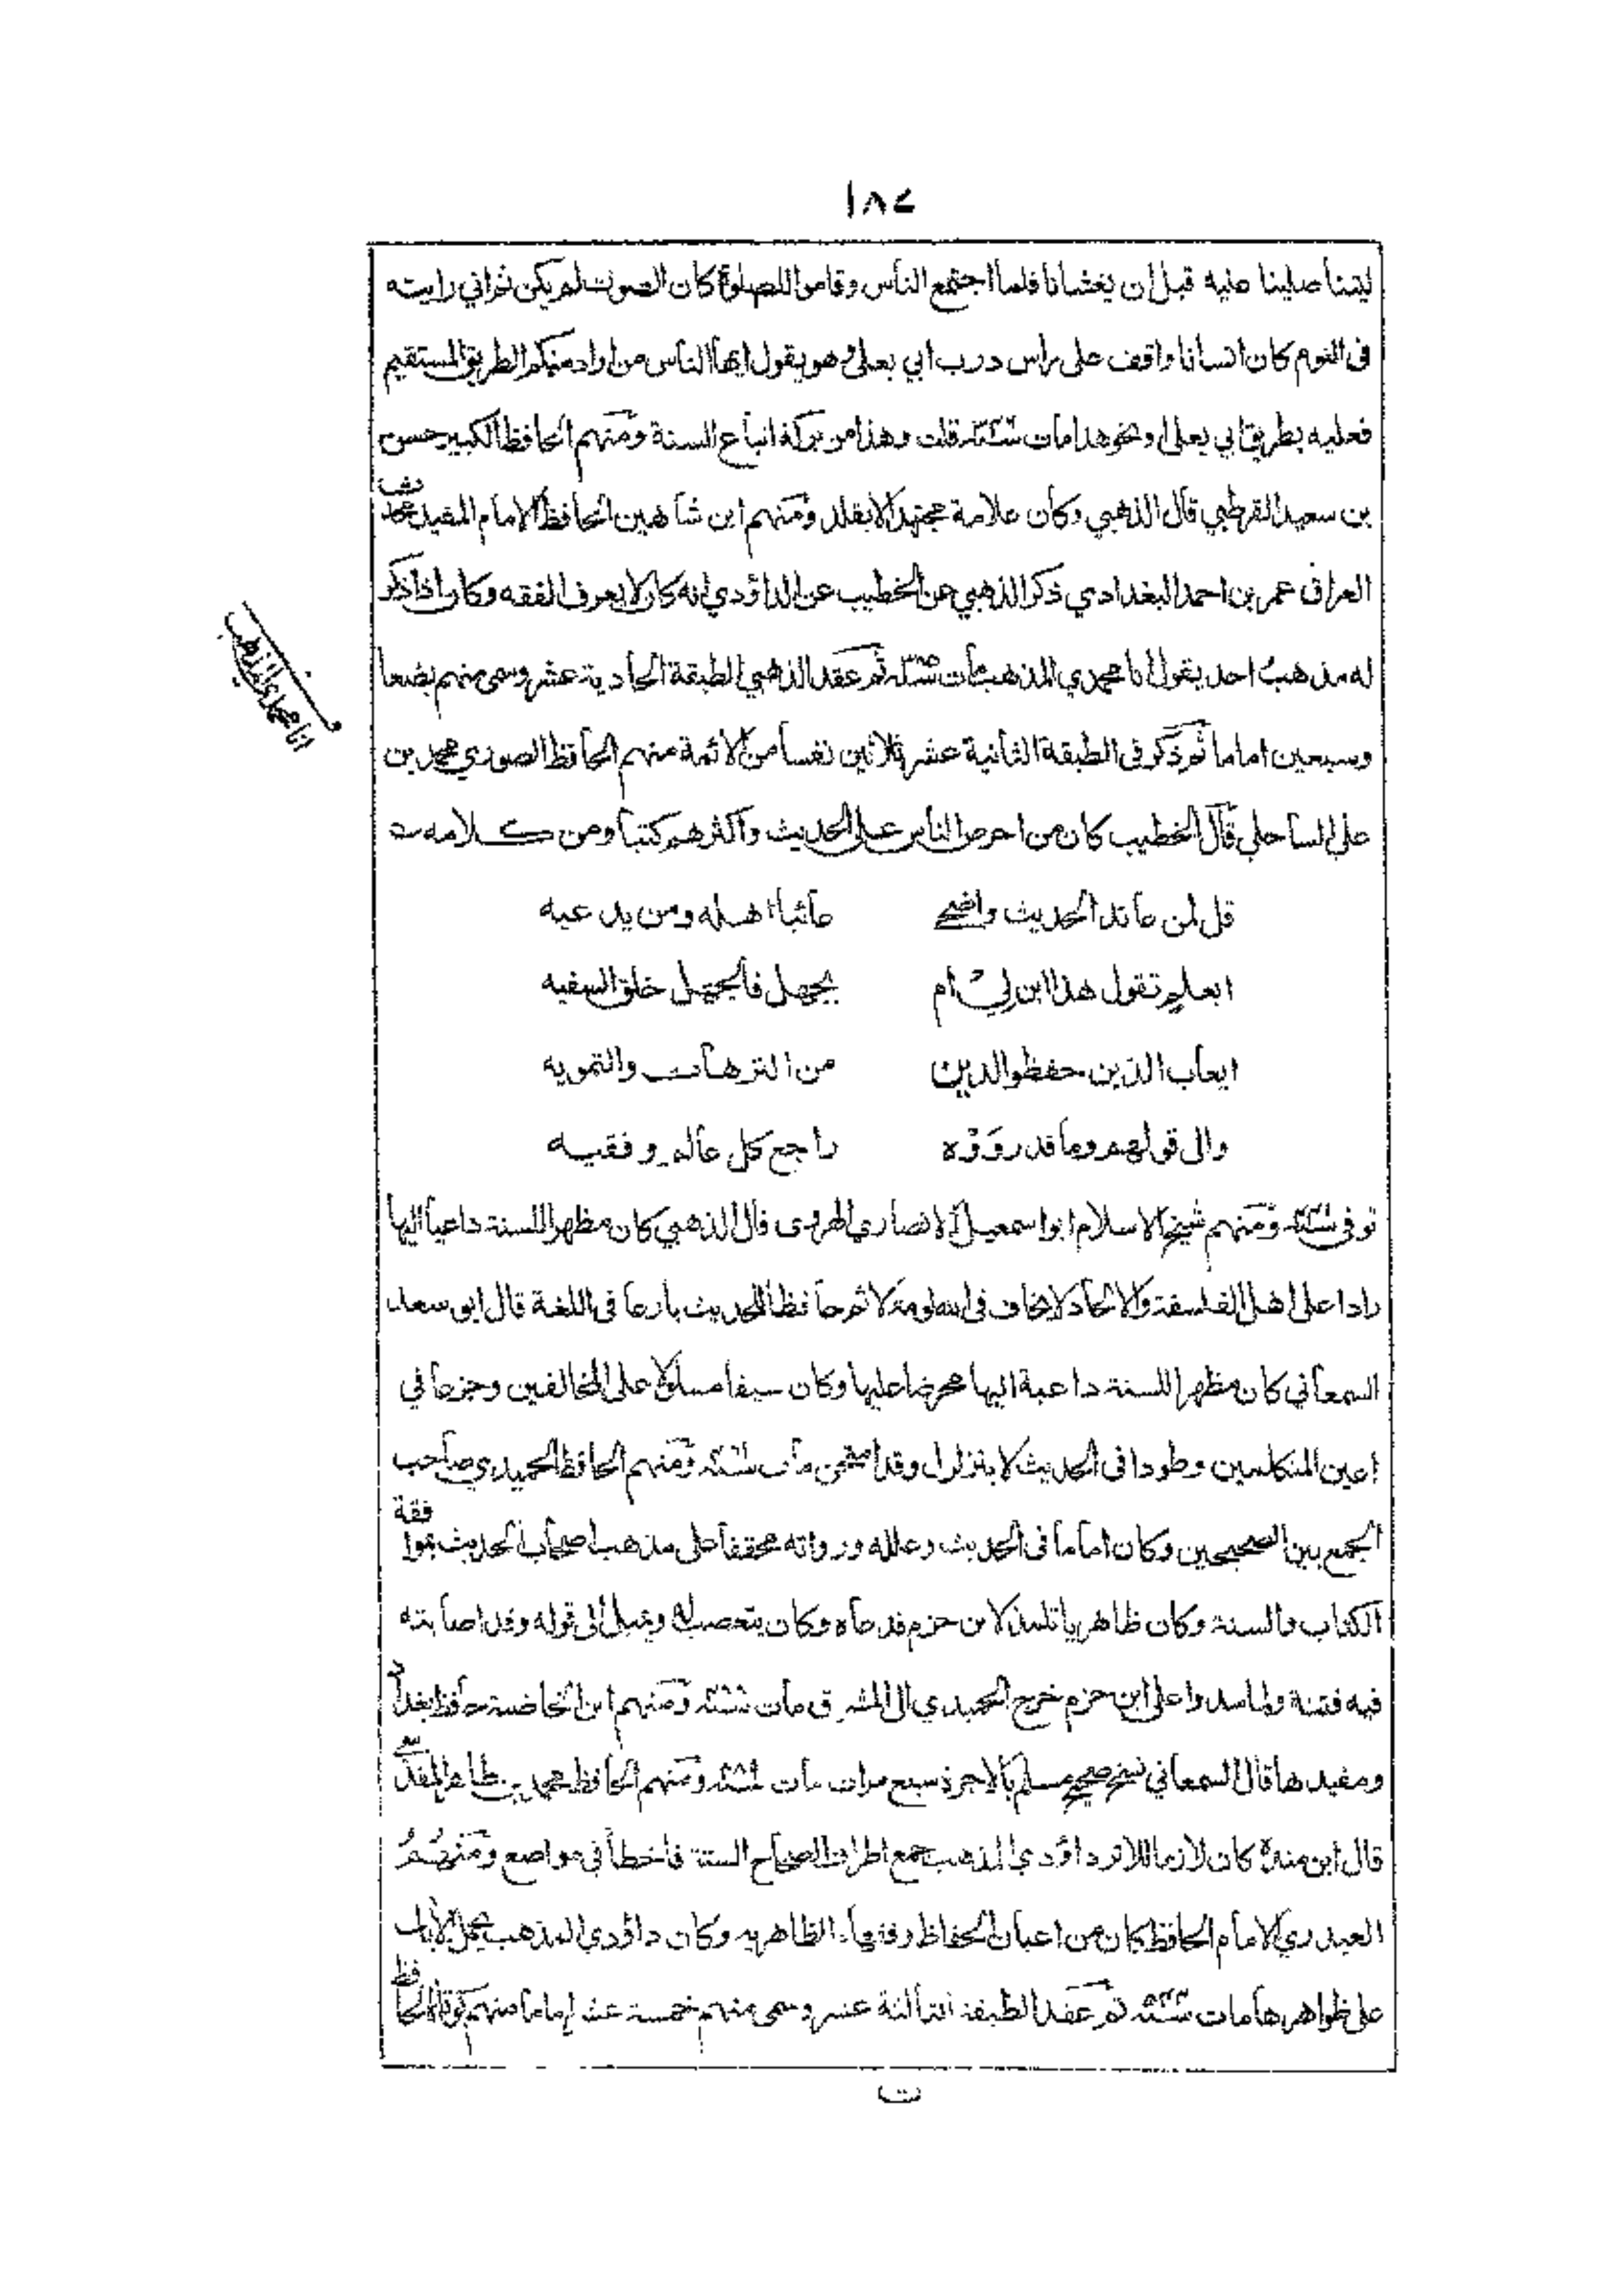 ١٨٤
ليتنا صلينا عليه قبل ان يغشانا فلما اجتمع الناس وقاموا للصلوة كان الصوت لم يكن ثم اني رايته
فى النوم كان انسانا واقف على راس درب ابي يعلى وهو يقول ايها الناس من اراد منكم الطريق المستقيم
فعليه بطريق ابي يعلى او نحو هذا مات قلت وهذا من بركة اتباع السنة ومنهم الحافظ الكبير حسن
بن سعيد القرطبي قال الذهبي وكان علامة مجتهدا لا يقلد ومنهم ابن شاهين الحافظ الامام المفيد محدث
العراق عمر بن احمد البغدادي ذكر الذهبي عن الخطيب عن الداؤدي انه كان لا يعرف الفقه وكان اذا ذكر
له مذهب احد يقول انا محمدي المذهب مات ثم عقد الذهبي الطبقة الحادية عشر وسمى منهم بضعا
انا محمدي المذهب
وسبعين اماما ثم ذكر فى الطبقة الثانية عشر ثلاثين نفسا من الائمة منهم الحافظ الصوري محمد بن
علي الساحلي قال الخطيب كان من احرص الناس على الحديث واكثرهم كتبا ومن كلامه
قل لمن عاند الحديث واضحى عائبا اهله ومن يدعيه
ابعلم تقول هذا ابن لي ام بجهل فالجهل خلق السفيه
ايعاب الذين حفظوا الدين من الترهات والتمويه
والى قولهم وما قد رووه راجع كل عالم وفقيه
توفى ومنهم شيخ الاسلام ابو اسمعيل الانصاري الهروى قال الذهبي كان مظهرا للسنة داعيا اليها
رادا على اهل الفلسفة والالحاد لا يخاف في الله لومة لائم حافظا للحديث بارعا فى اللغة قال ابو سعد
السمعاني كان مظهرا للسنة داعية اليها محرضا عليها وكان سيفا مسلولا على المخالفين وجزعا في
اعين المتكلمين وطودا فى الحديث لا يتزلزل وقد امتحن مات ومنهم الحافظ الحميدي صاحب
الجمع بين الصحيحين وكان اماما فى الحديث وعلله ورواته محققا على مذهب اصحاب الحديث بموافقة
الكتاب والسنة وكان ظاهريا تلميذ لابن حزم وكان يتعصب له ويميل الى قوله وقد اصابته
فيه فتنة ولما شددوا على ابن حزم خرج الحميدي الى المشرق مات ومنهم ابن الخاضبة حافظ بغداد
ومفيدها قال السمعاني نسخ صحيح مسلم بالاجرة سبع مرات مات ومنهم الحافظ محمد بن طاهر المقدسي
قال ابن مندة كان لازما للاثر داؤدي المذهب جمع اطراف الصحاح الستة فاخطأ في مواضع ومنهم
العبدري الامام الحافظ كان من اعيان الحفاظ وفقهاء الظاهرية وكان داؤدي المذهب يحمل الآيات
على ظواهرها مات ثم عقد الطبقة الثالثة عشر وسمى منهم خمسة عشر اماما منهم الحافظ
ت